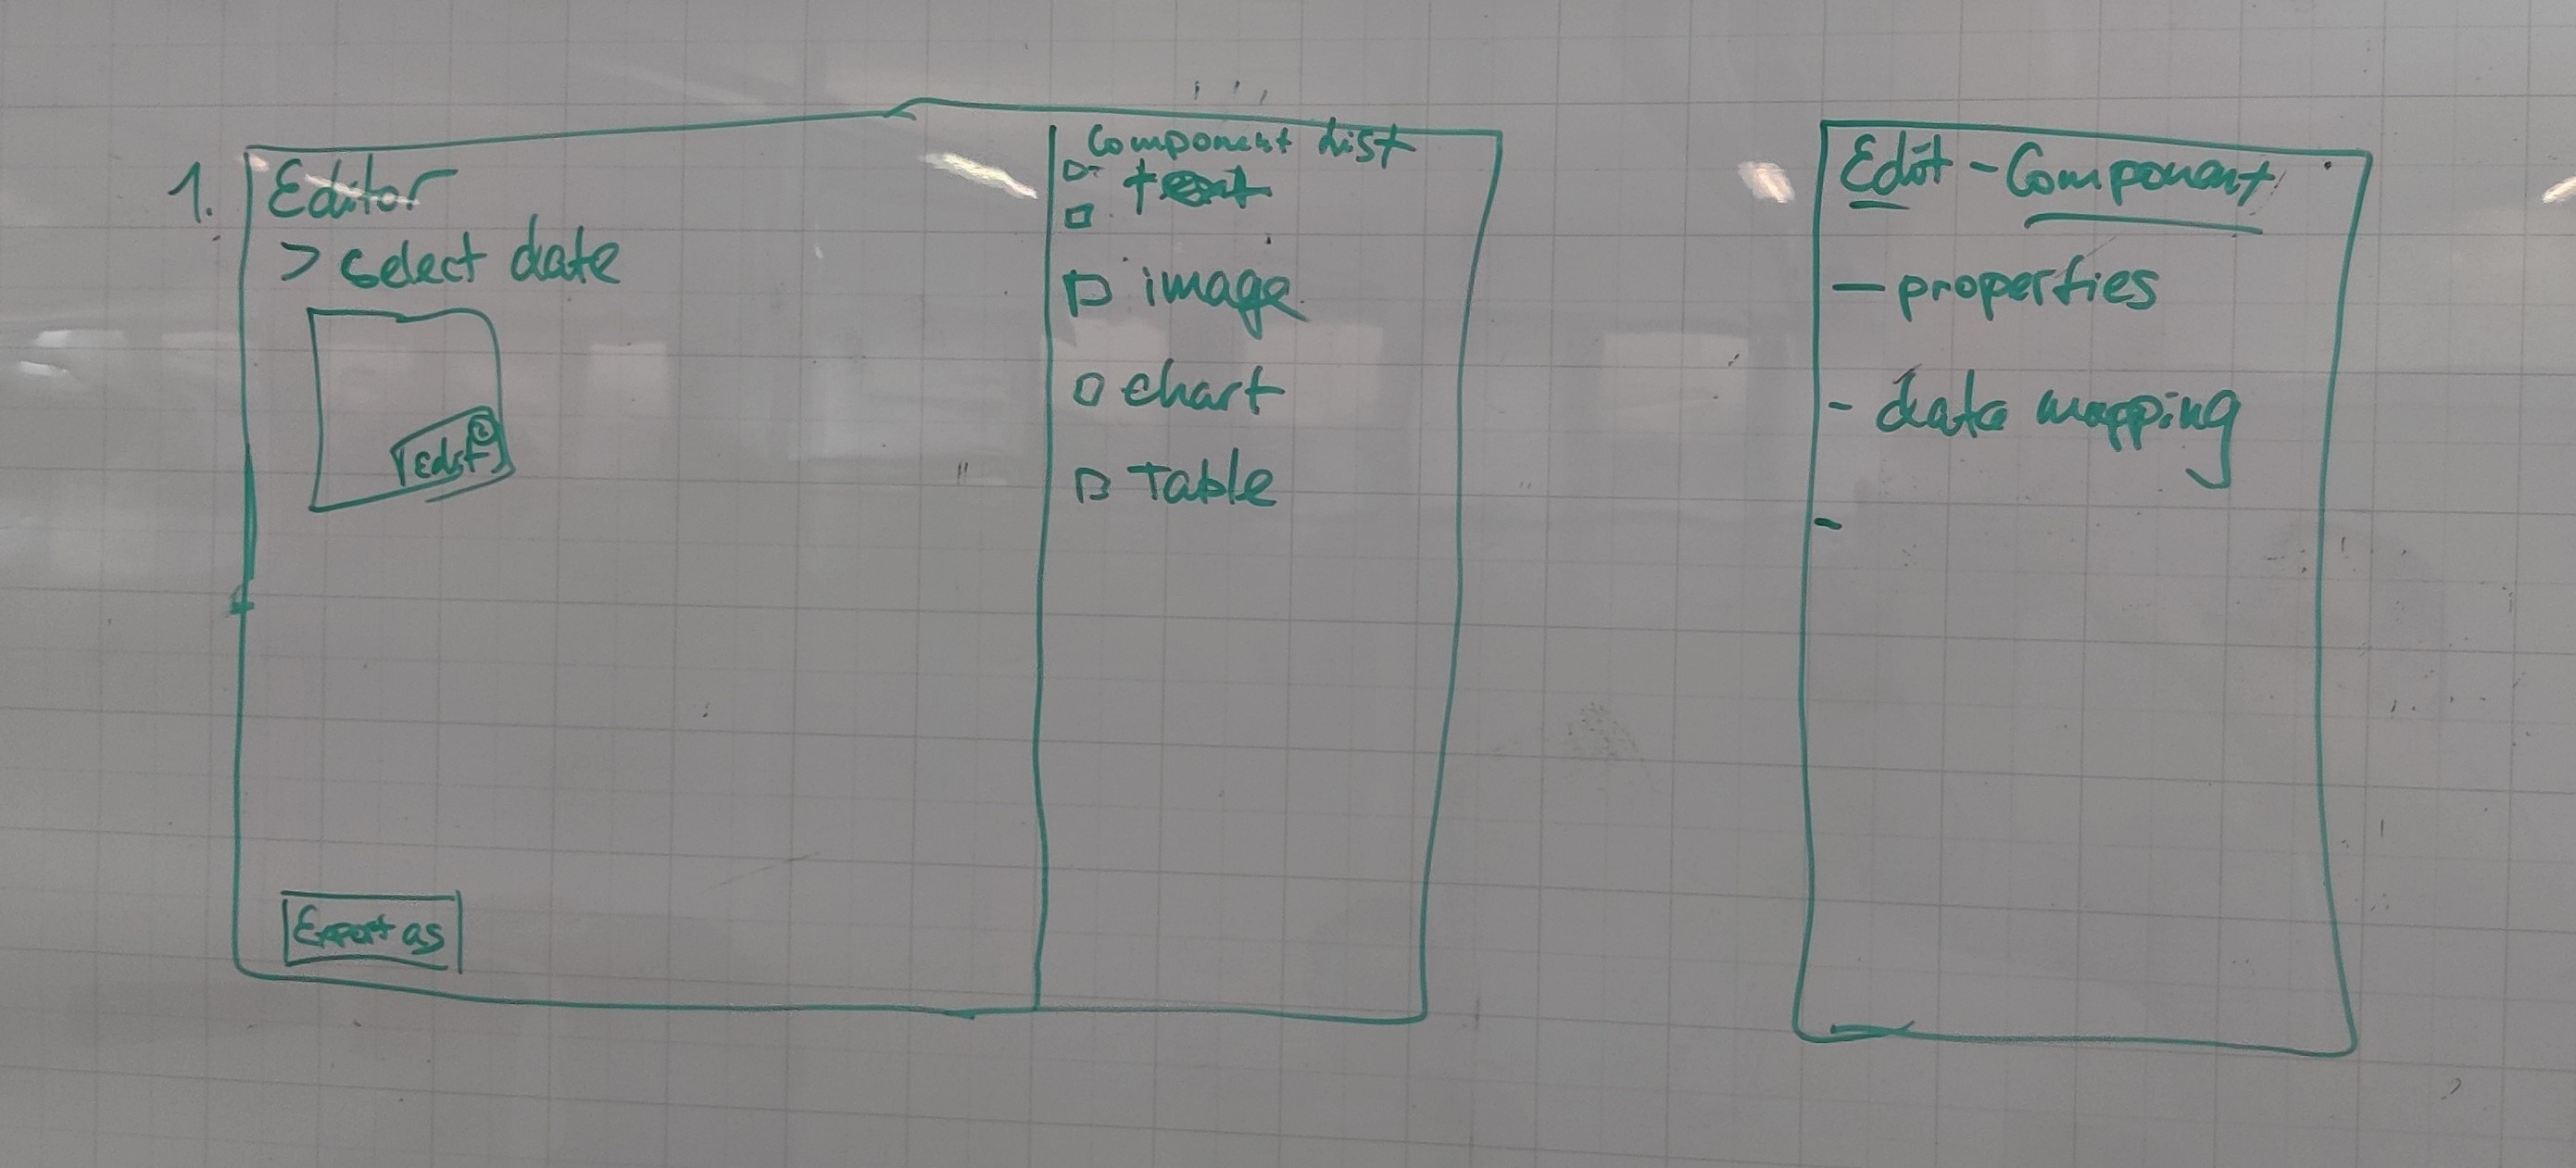 1.
Editor
> select date
Edit 2
Export as
Component List
text
image
chart
Table
Edit - Component
- properties
- data mapping
-